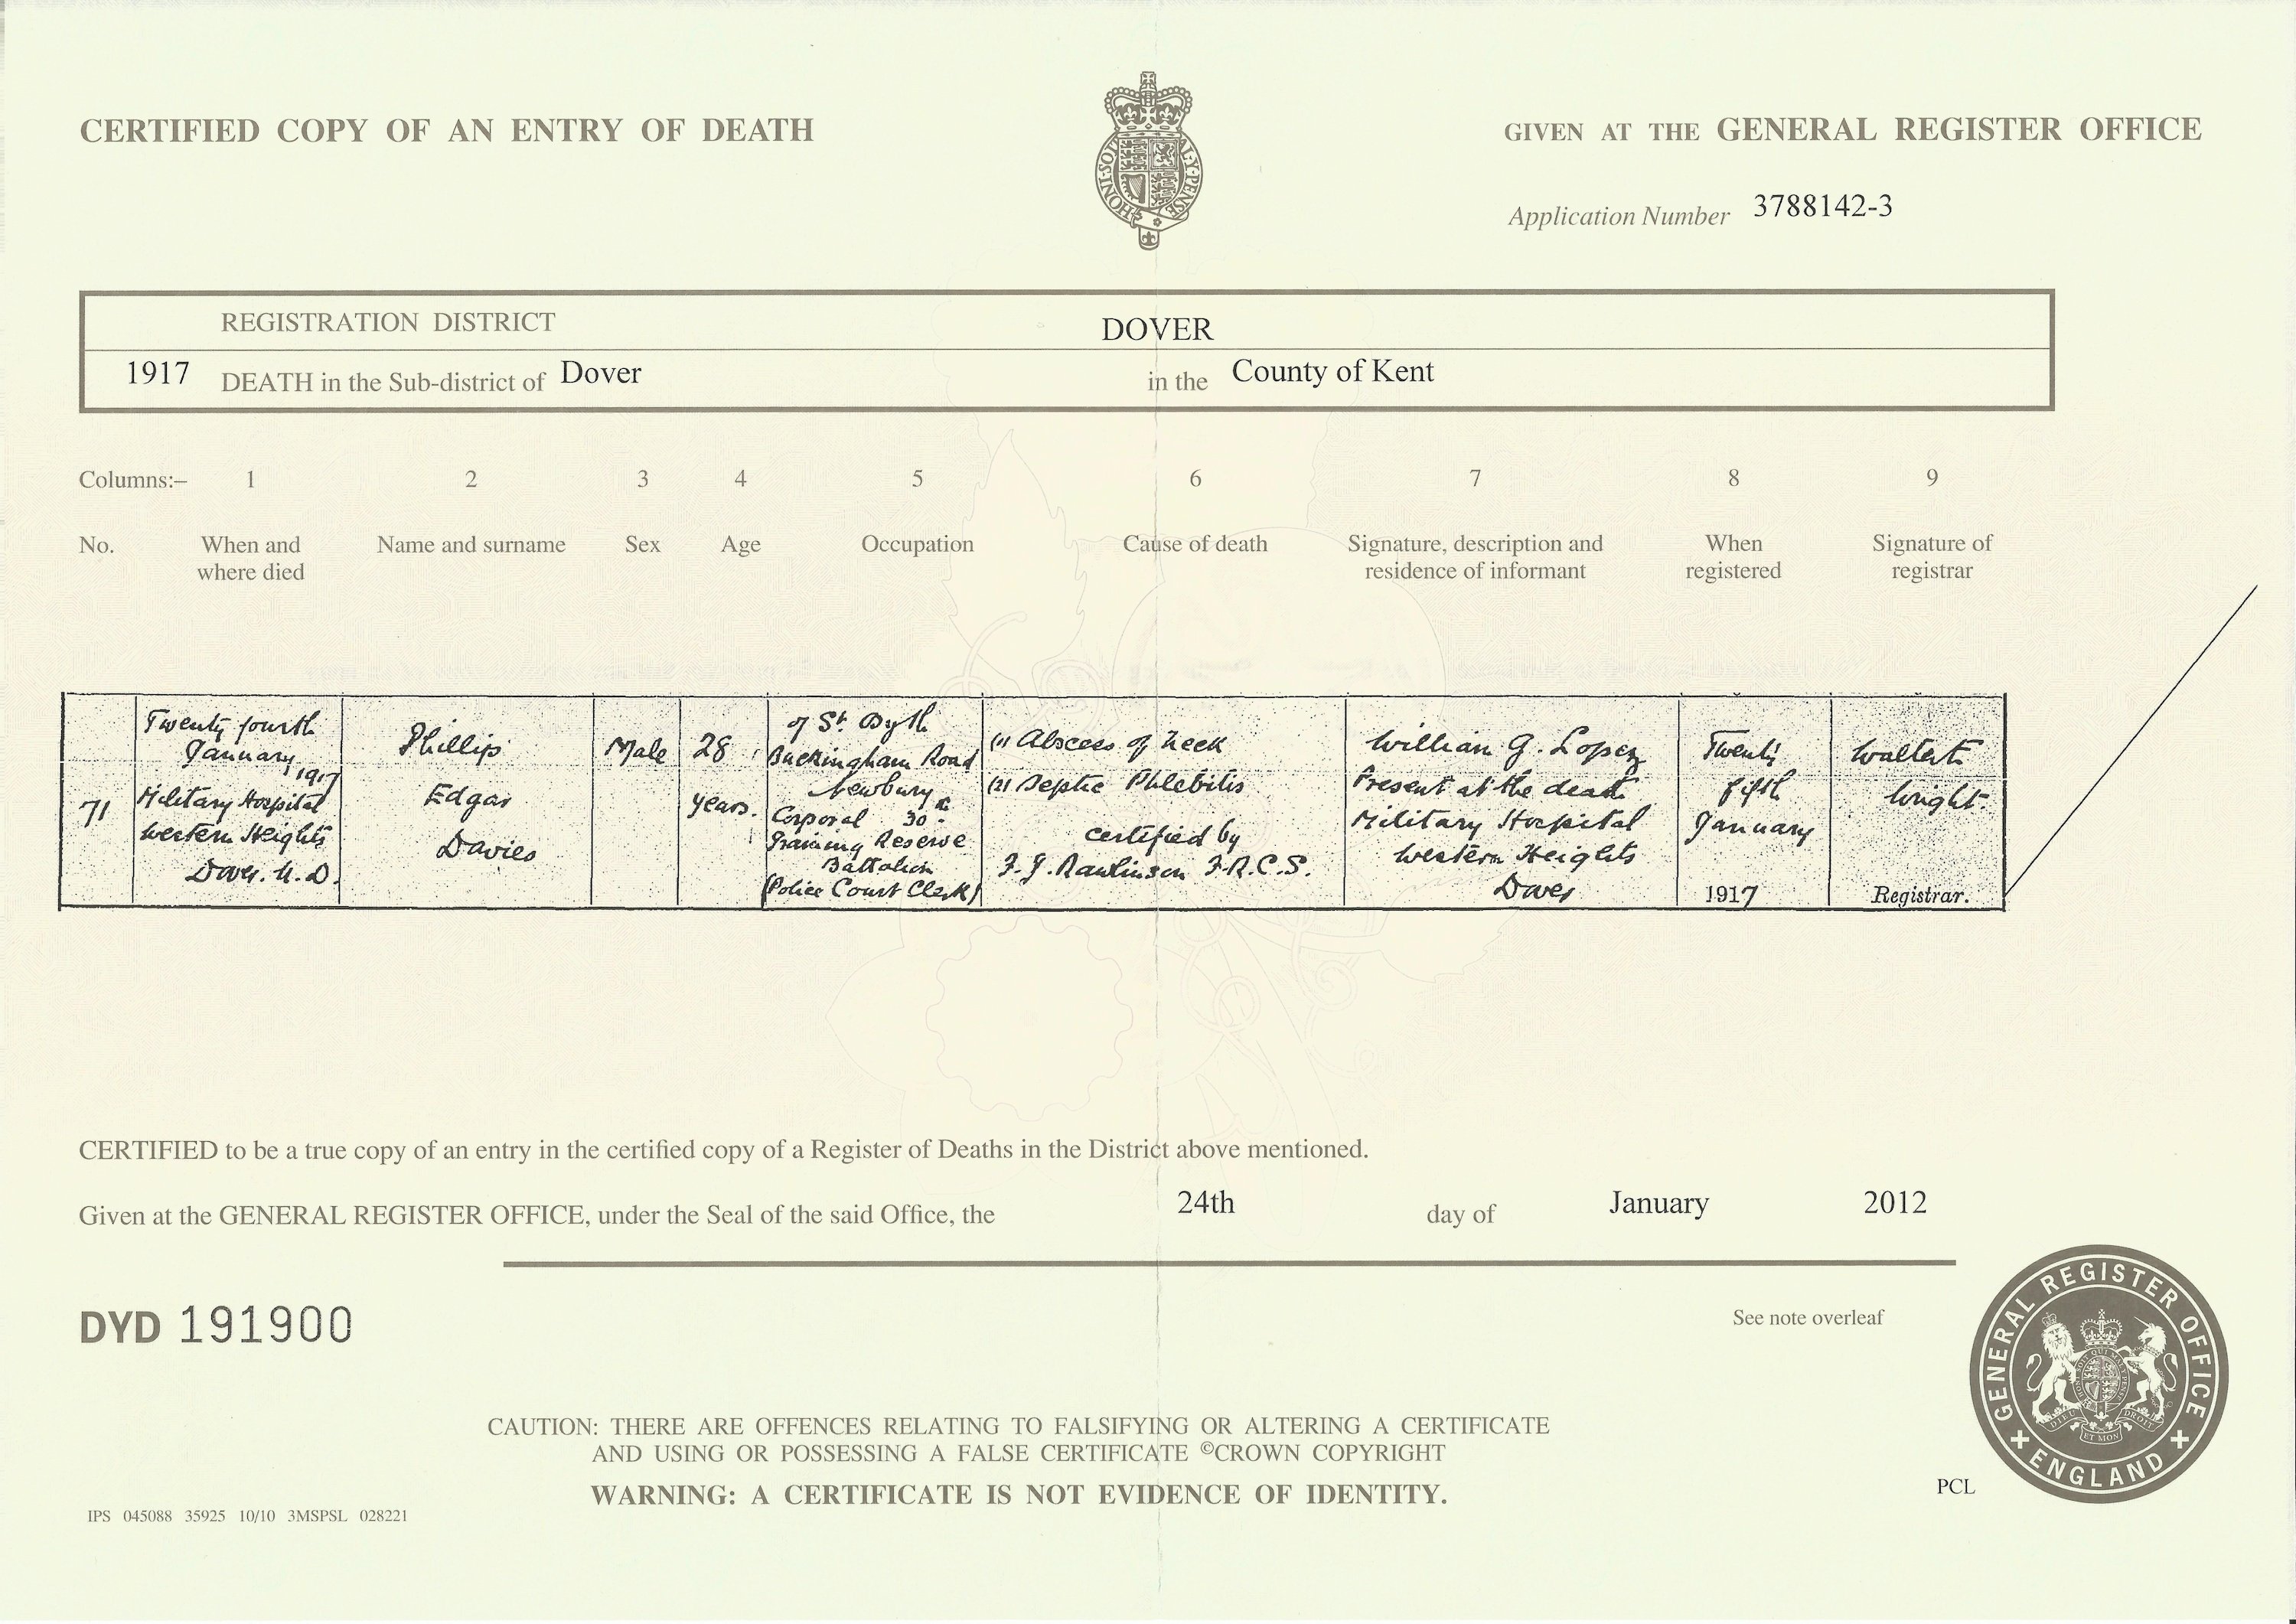 CERTIFIED COPY OF AN ENTRY OF DEATH
GIVEN AT THE GENERAL REGISTER OFFICE
Application Number 3788142-3
REGISTRATION DISTRICT DOVER
1917 DEATH in the Sub-district of Dover in the County of Kent
Columns:– 1 2 3 4 5 6 7 8 9
No. When and where died Name and surname Sex Age Occupation Cause of death Signature, description and residence of informant When registered Signature of registrar
71
Twenty fourth
January
1917
Military Hospital
Western Heights
Dover. U.D.
Phillip
Edgar
Davies
Male
28
years.
of St.
Buckingham Road
Newbury
Corporal 30th
Training Reserve
Battalion
(Police Court Clerk)
(1) Abscess of Neck
(2) Septic Phlebitis
Certified by
F.J. Rawlinson F.R.C.S.
William G. Lopez
Present at the death
Military Hospital
Western Heights
Dover
Twenty
fifth
January
1917
Walter
Wright
Registrar.
CERTIFIED to be a true copy of an entry in the certified copy of a Register of Deaths in the District above mentioned.
Given at the GENERAL REGISTER OFFICE, under the Seal of the said Office, the 24th day of January 2012
DYD 191900
See note overleaf
CAUTION: THERE ARE OFFENCES RELATING TO FALSIFYING OR ALTERING A CERTIFICATE
AND USING OR POSSESSING A FALSE CERTIFICATE ©CROWN COPYRIGHT
WARNING: A CERTIFICATE IS NOT EVIDENCE OF IDENTITY.
IPS 045088 35925 10/10 3MSPSL 028221
PCL
GENERAL REGISTER OFFICE
ENGLAND